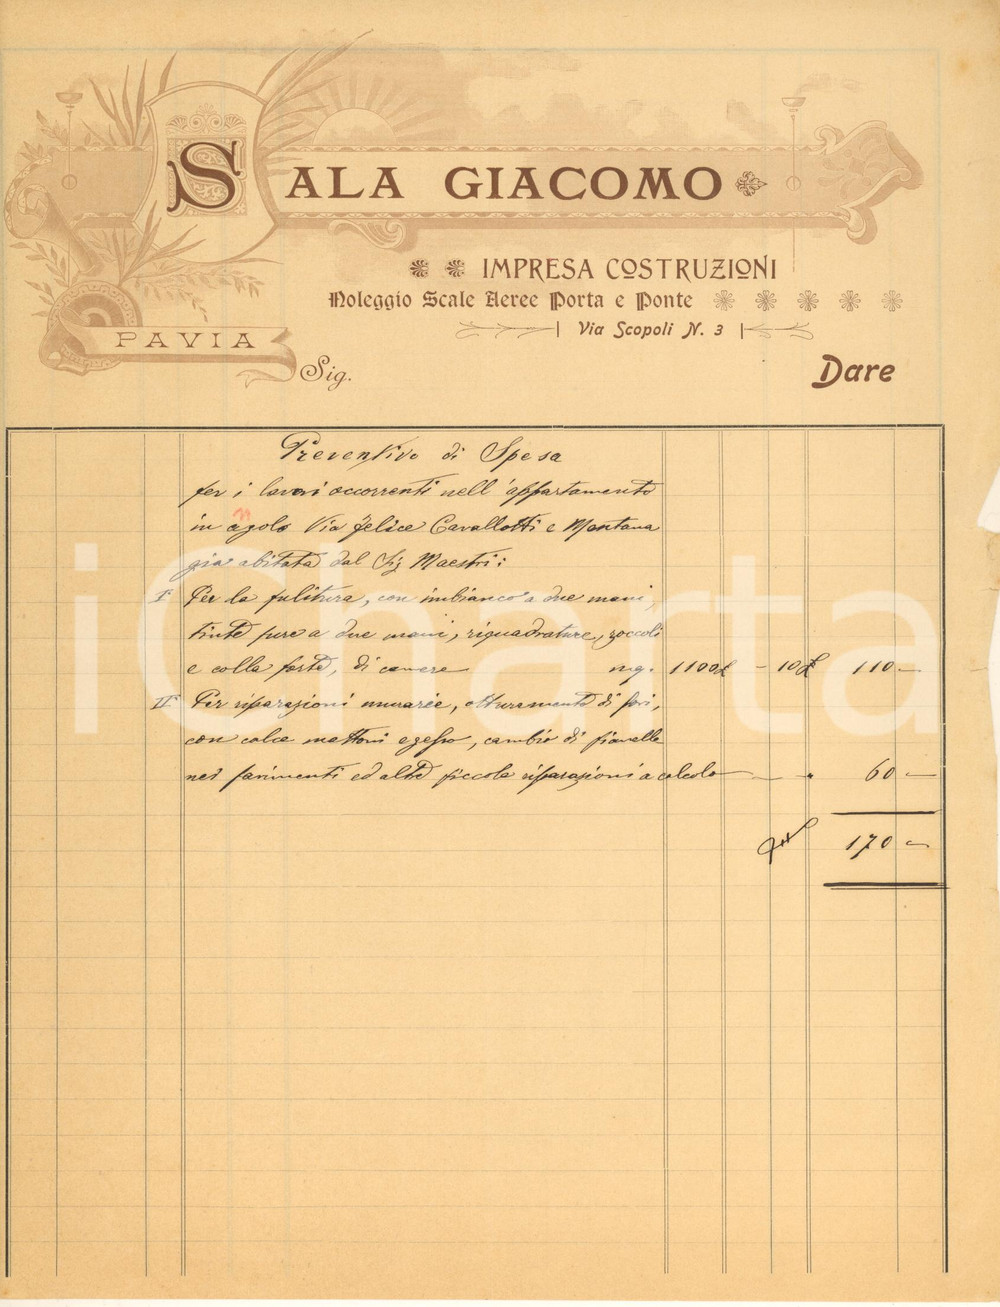 SALA GIACOMO
IMPRESA COSTRUZIONI
Noleggio Scale Aeree Porta e Ponte
Via Scopoli N. 3
PAVIA
Sig.
Dare
Preventivo di Spesa
per i lavori occorrenti nell'appartamento
in agolo Via Felice Cavallotti e Mentana
n
già abitata dal Sig Maestri:
I° Per la pulitura, con imbianco a due mani,
tinte pure a due mani, riquadrature, zoccoli
e colla forte, di camere mq. 1100 £ - 10 £ 110 -
II° Per riparazioni murarie, otturamento di fori,
con calce mattoni e gesso, cambio di pianelle
nei pavimenti ed altre piccole riparazioni a calcolo - " 60 -
170 -
iCharta